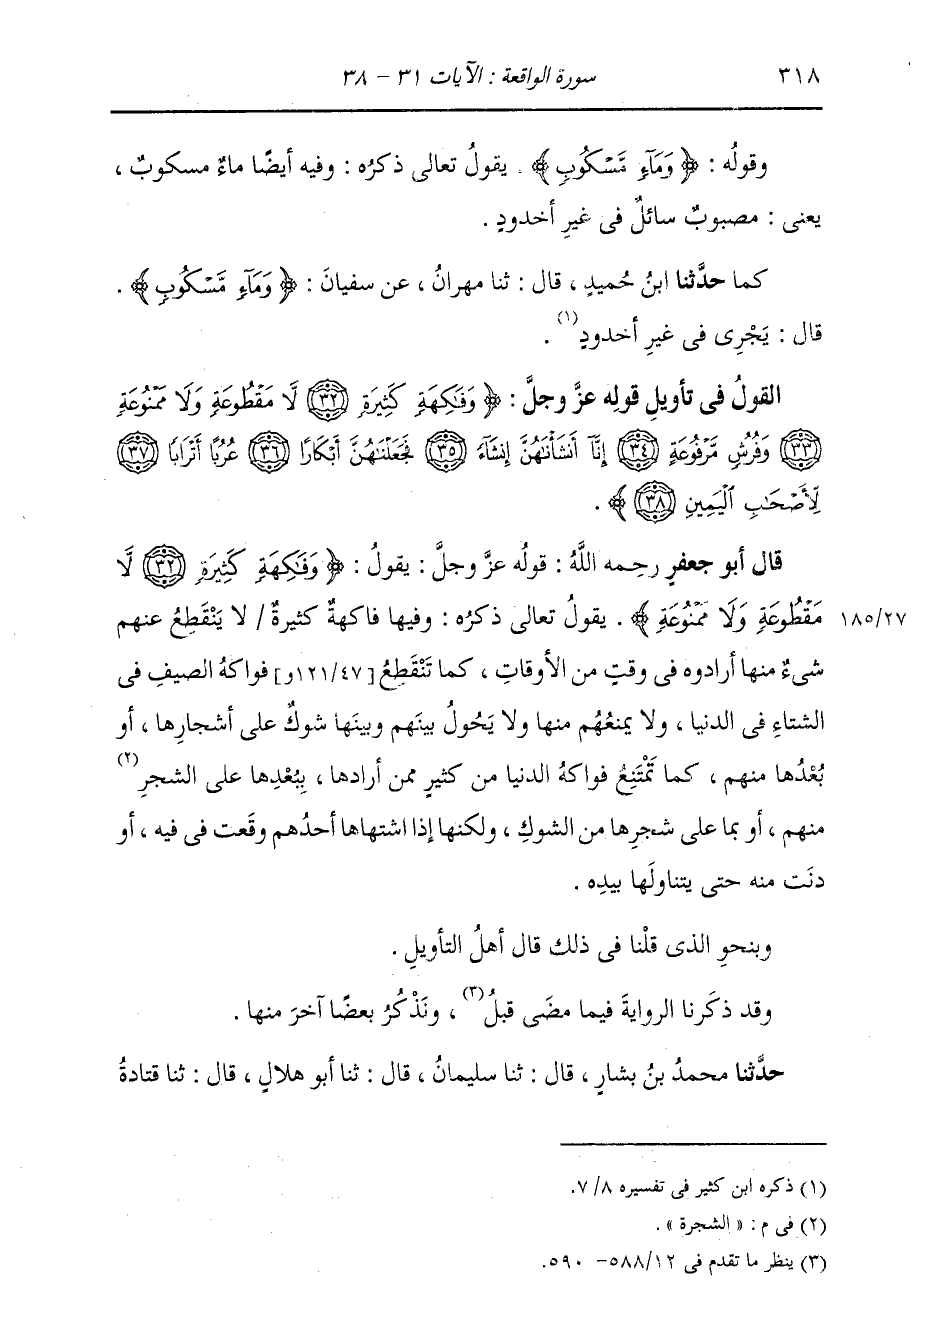 ٣١٨ سورة الواقعة : الآيات ٣١ - ٣٨
وقولُه : ﴿ وَمَآءٍ مَّسْكُوبٍ ﴾ . يقولُ تعالى ذكرُه : وفيه أيضًا ماءٌ مسكوبٌ ،
يعنى : مصبوبٌ سائلٌ فى غيرِ أخدودٍ .
كما حدَّثنا ابنُ حُميدٍ ، قال : ثنا مهرانُ ، عن سفيانَ : ﴿ وَمَآءٍ مَّسْكُوبٍ ﴾ .
قال : يَجْرِى فى غيرِ أخدودٍ(١) .
القولُ فى تأويلِ قولِه عزَّ وجلَّ : ﴿ وَفَٰكِهَةٍ كَثِيرَةٍ ٣٢ لَّا مَقْطُوعَةٍ وَلَا مَمْنُوعَةٍ
٣٣ وَفُرُشٍ مَّرْفُوعَةٍ ٣٤ إِنَّآ أَنشَأْنَٰهُنَّ إِنشَآءً ٣٥ فَجَعَلْنَٰهُنَّ أَبْكَارًا ٣٦ عُرُبًا أَتْرَابًا ٣٧
لِّأَصْحَٰبِ ٱلْيَمِينِ ٣٨ ﴾ .
قال أبو جعفرٍ رحِمه اللَّهُ : قولُه عزَّ وجلَّ : يقولُ : ﴿ وَفَٰكِهَةٍ كَثِيرَةٍ ٣٢ لَّا
١٨٥/٢٧ مَقْطُوعَةٍ وَلَا مَمْنُوعَةٍ ﴾ . يقولُ تعالى ذكرُه : وفيها فاكهةٌ كثيرةٌ / لا يَنْقَطِعُ عنهم
شىءٌ منها أرادوه فى وقتٍ من الأوقاتِ ، كما تَنْقَطِعُ [١٢١/٤٧و] فواكهُ الصيفِ فى
الشتاءِ فى الدنيا ، ولا يمنعُهُم منها ولا يَحُولُ بينَهم وبينَها شوكٌ على أشجارِها ، أو
بُعْدُها منهم ، كما تَمْتَنِعُ فواكهُ الدنيا من كثيرٍ ممن أرادها ، بِبُعْدِها على الشجرِ(٢)
منهم ، أو بما على شجرِها من الشوكِ ، ولكنها إذا اشتهاها أحدُهم وقَعت فى فيه ، أو
دنَت منه حتى يتناولَها بيدِه .
وبنحوِ الذى قلْنا فى ذلك قال أهلُ التأويلِ .
وقد ذكَرنا الروايةَ فيما مضَى قبلُ(٣) ، ونَذْكُرُ بعضًا آخرَ منها .
حدَّثنا محمدُ بنُ بشارٍ ، قال : ثنا سليمانُ ، قال : ثنا أبو هلالٍ ، قال : ثنا قتادةُ
(١) ذكره ابن كثير فى تفسيره ٨/ ٧.
(٢) فى م : « الشجرة » .
(٣) ينظر ما تقدم فى ٥٨٨/١٢- ٥٩٠.